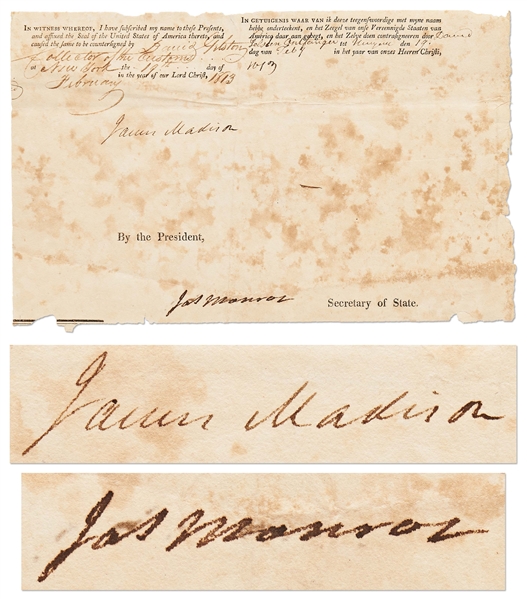 IN WITNESS WHEREOF, I have subscribed my name to these Presents,
and affixed the Seal of the United States of America thereto, and
caused the same to be countersigned by David Gelston
Collector of the Customs
at New York the day of
February in the year of our Lord Christ, 1813
IN GETUIGENIS WAAR VAN ik deeze teegenswoordige met myne naam
hebbe ondertekent, en het Zeegel van onse Vereenigde Staaten van
America daar aan gehegt, en het Zelve doen contrasigneeren door David
Gelston Ontfanger in 19
dag van in het jaar van onses Heeren Christi,
1813
James Madison
By the President,
Jas Monroe Secretary of State.
James Madison
Jas Monroe